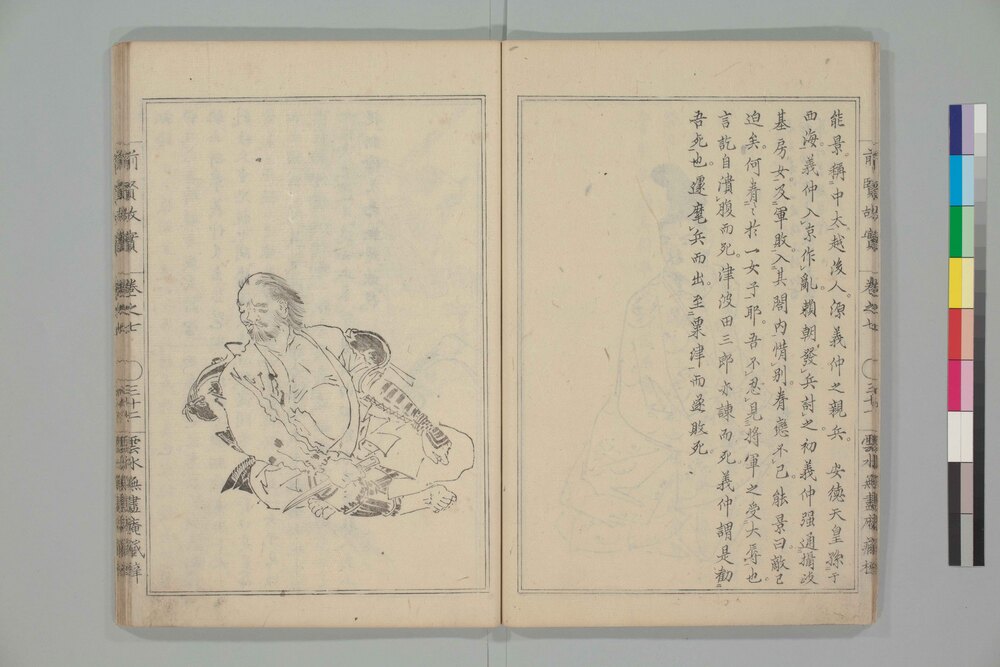 能景稱中太越後人源義仲之親兵 安德天皇孫于
西海義仲入京作亂賴朝發兵討之初義仲强通攝政
基房女及軍敗入其閤内惜別眷戀不已能景曰敵已
迫矣何眷〻於一女子耶吾不忍見將軍之受大辱也
言訖自潰腹而死津波田三郎亦諫而死義仲謂是勸
吾死也遽麾兵而出至粟津而遂敗死
前賢故實
卷之七
雲水無盡庵藏
前賢故實
卷之七
雲水無盡庵藏